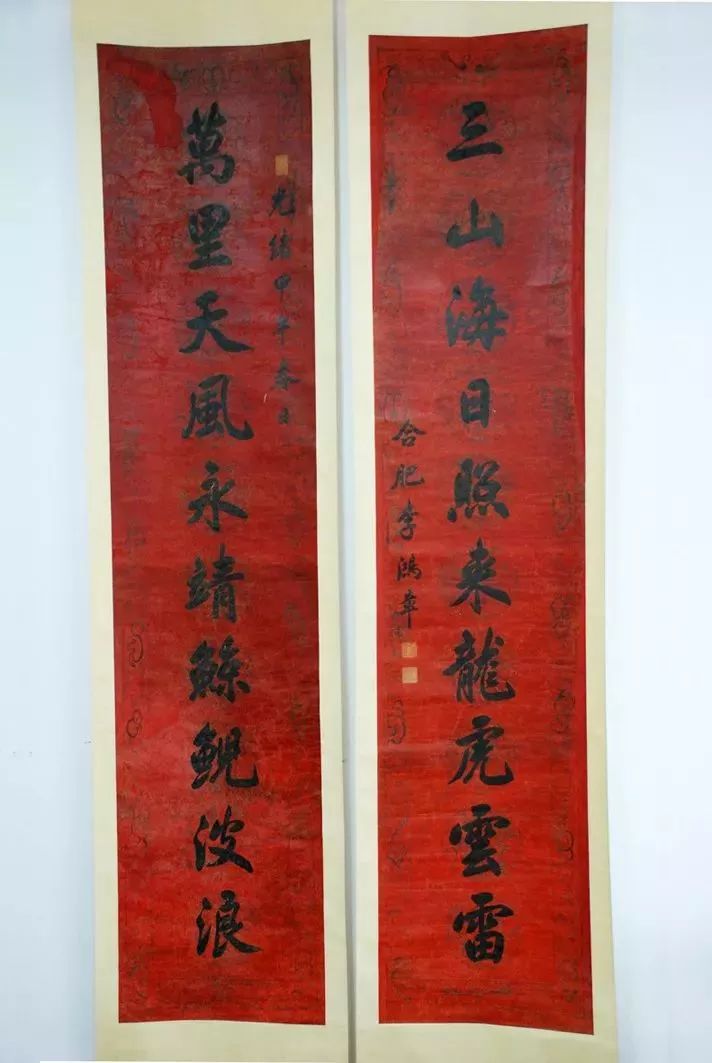 光緒甲午春日
萬里天風永靖鯨鯢波浪
三山海日照来龍虎雲雷
合肥李鴻章